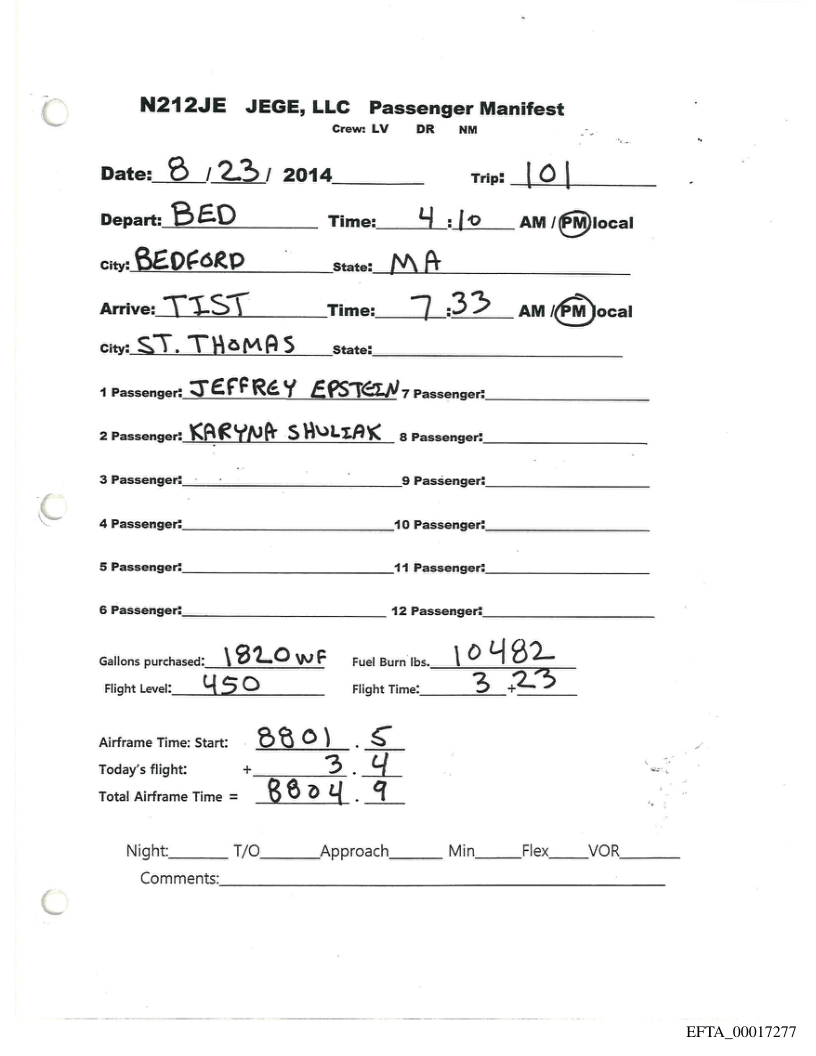 N212JE JEGE, LLC Passenger Manifest
Crew: LV DR NM
Date: 8 / 23 / 2014 Trip: 101
Depart: BED Time: 4:10 AM / PM local
City: BEDFORD State: MA
Arrive: TIST Time: 7:33 AM / PM local
City: ST. THOMAS State:
1 Passenger: JEFFREY EPSTEIN 7 Passenger:
2 Passenger: KARYNA SHULIAK 8 Passenger:
3 Passenger: 9 Passenger:
4 Passenger: 10 Passenger:
5 Passenger: 11 Passenger:
6 Passenger: 12 Passenger:
Gallons purchased: 1820 WF Fuel Burn lbs. 10482
Flight Level: 450 Flight Time: 3 + 23
Airframe Time: Start: 8801 . 5
Today's flight: + 3 . 4
Total Airframe Time = 8804 . 9
Night: T/O Approach Min Flex VOR
Comments:
EFTA_00017277